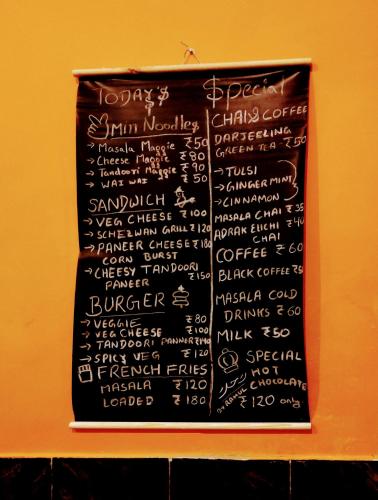 TODAY'$ $pecial
2 Min Noodles
→ Masala Maggie ₹50
→ Cheese Maggie ₹80
→ Tandoori Maggie ₹90
→ WAI WAI ₹50
SANDWICH
→ VEG CHEESE ₹100
→ SCHEZWAN GRILL ₹120
→ PANEER CHEESE ₹180
CORN BURST
→ CHEESY TANDOORI
PANEER ₹150
BURGER
→ VEGGIE ₹80
→ VEG CHEESE ₹100
→ TANDOORI PANNER ₹140
→ SPICY VEG ₹120
FRENCH FRIES
MASALA ₹120
LOADED ₹180
CHAI & COFFEE
DARJEELING
GREEN TEA ₹50
→ TULSI
→ GINGER MINT
→ CINNAMON
MASALA CHAI ₹35
ADRAK ELICHI ₹40
CHAI
COFFEE ₹60
BLACK COFFEE ₹50
MASALA COLD
DRINKS ₹60
MILK ₹50
SPECIAL
HOT
CHOCOLATE
₹120 only.